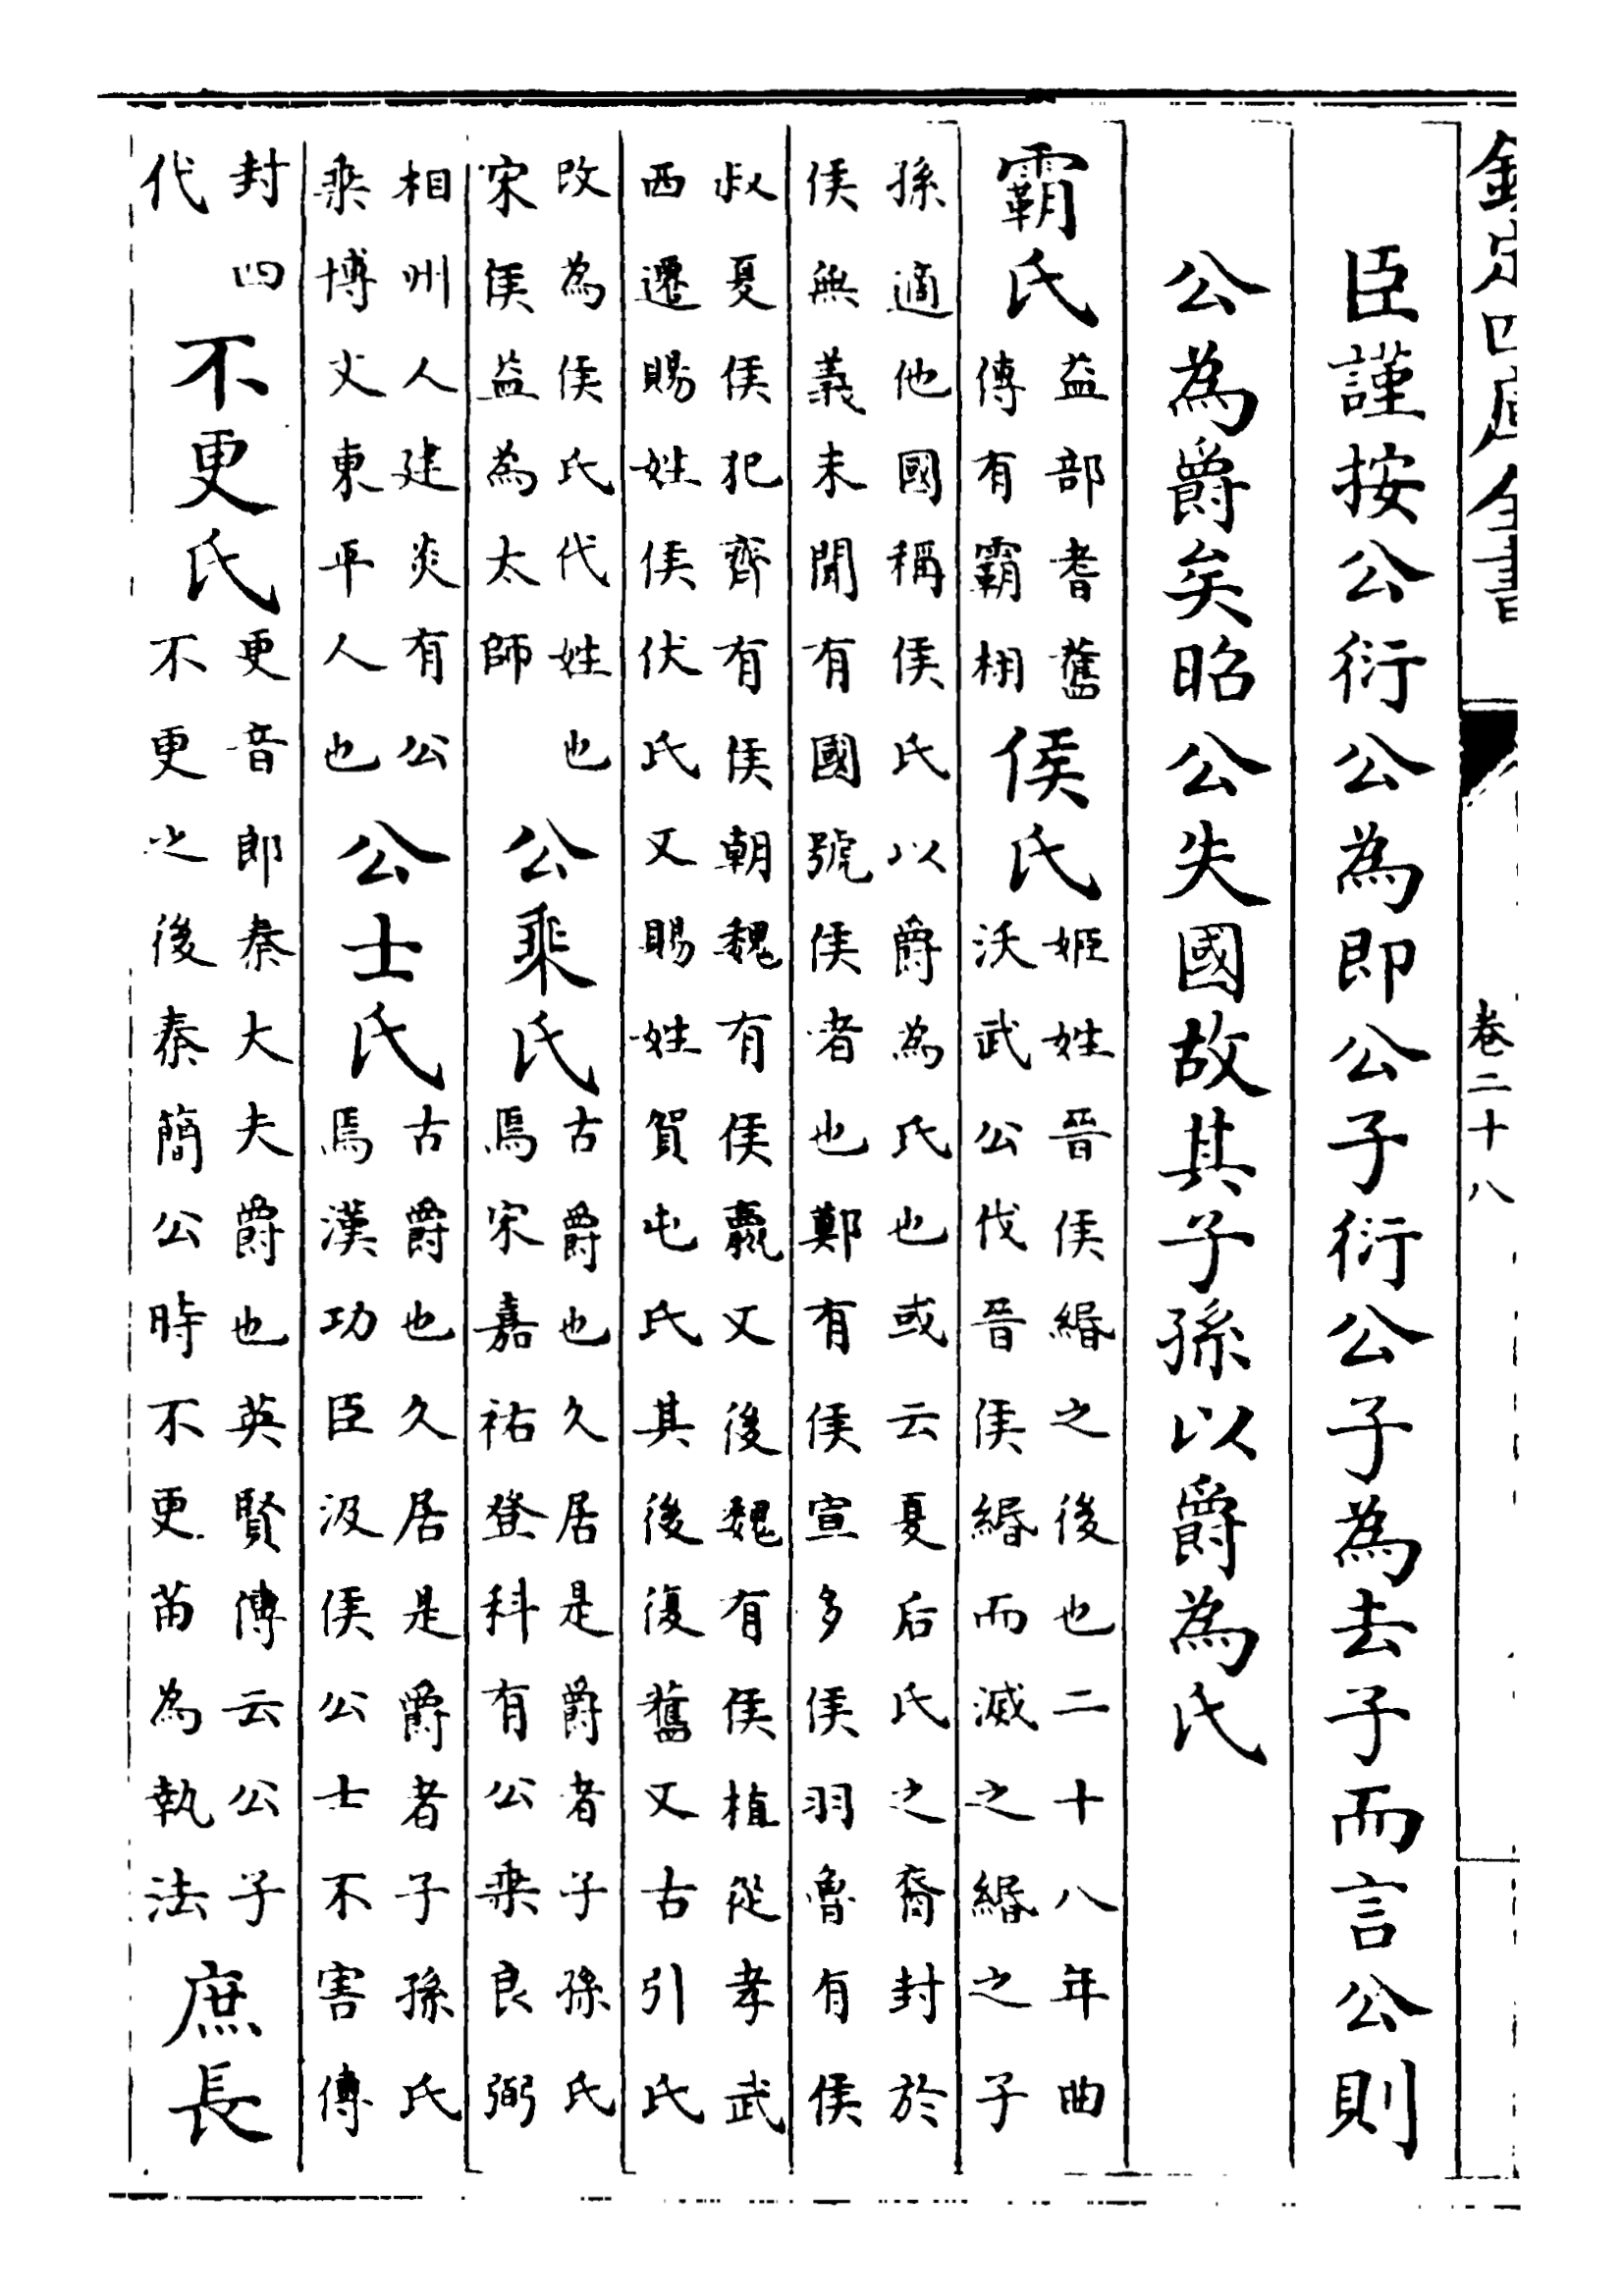 欽定四庫全書 卷二十八
臣謹按公衍公為即公子衍公子為去子而言公則
公為爵矣昭公失國故其子孫以爵為氏
霸氏益部耆舊傳有霸栩侯氏姬姓晉侯緡之後也二十八年曲沃武公伐晉侯緡而滅之緡之子
孫適他國稱侯氏以爵為氏也或云夏后氏之裔封於
侯無義未聞有國號侯者也鄭有侯宣多侯羽魯有侯
叔夏侯犯齊有侯朝魏有侯嬴又後魏有侯植從孝武
西遷賜姓侯伏氏又賜姓賀屯氏其後復舊又古引氏
改為侯氏代姓也宋侯益為太師公乘氏古爵也久居是爵者子孫氏焉宋嘉祐登科有公乘良弼
相州人建炎有公乘博文東平人也公士氏古爵也久居是爵者子孫氏焉漢功臣汲侯公士不害傳
封四代不更氏更音郎秦大夫爵也英賢傳云公子不更之後秦簡公時不更苗為執法庶長